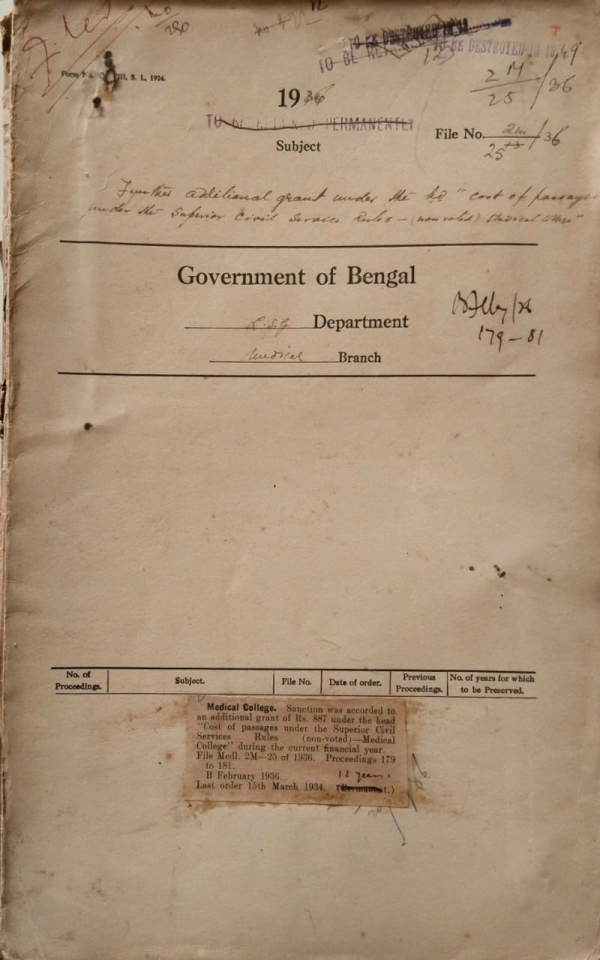 TO BE DESTROYED IN 19
TO BE DESTROYED IN 1949
TO BE
12
S. L., 1934.
2 M
25 /36
1936
TO BE RETAINED PERMANENTLY
File No. 2M /36
25
Subject
Further additional grant under the hd "cost of passages
under the Superior Civil Service Rules - (non voted) Medical College"
Government of Bengal
L.S.G Department
Medical Branch
179 - 81
No. of Proceedings.
Subject.
File No.
Date of order.
Previous Proceedings.
No. of years for which to be Preserved.
Medical College. Sanction was accorded to
an additional grant of Rs. 887 under the head
"Cost of passages under the Superior Civil
Services Rules (non-voted)—Medical
College" during the current financial year.
File Medl. 2M—25 of 1936. Proceedings 179
to 181.
B February 1936. 12 years.
Last order 15th March 1934. (Permanent.)